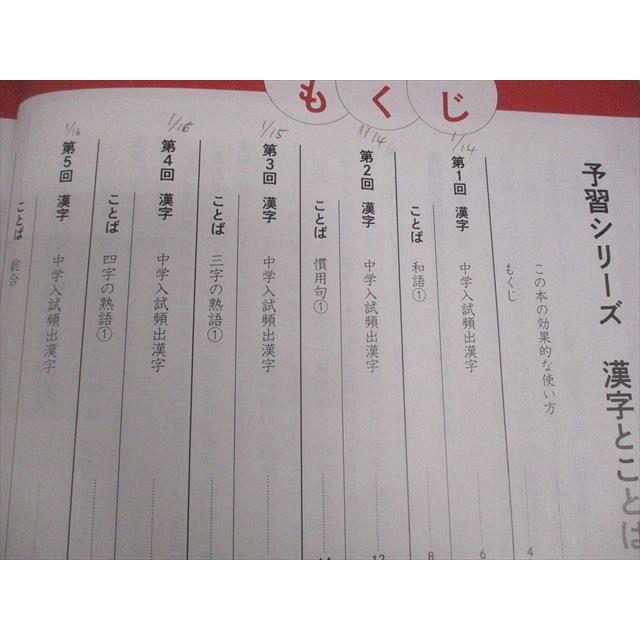 もくじ
予習シリーズ 漢字とことば
この本の効果的な使い方
もくじ 4
1/14
第1回 漢字 中学入試頻出漢字 6
ことば 和語① 8
第2回 漢字 中学入試頻出漢字 12
ことば 慣用句①
1/15
第3回 漢字 中学入試頻出漢字
ことば 三字の熟語①
第4回 漢字 中学入試頻出漢字
ことば 四字の熟語①
1/16
第5回 漢字 中学入試頻出漢字
ことば 総合